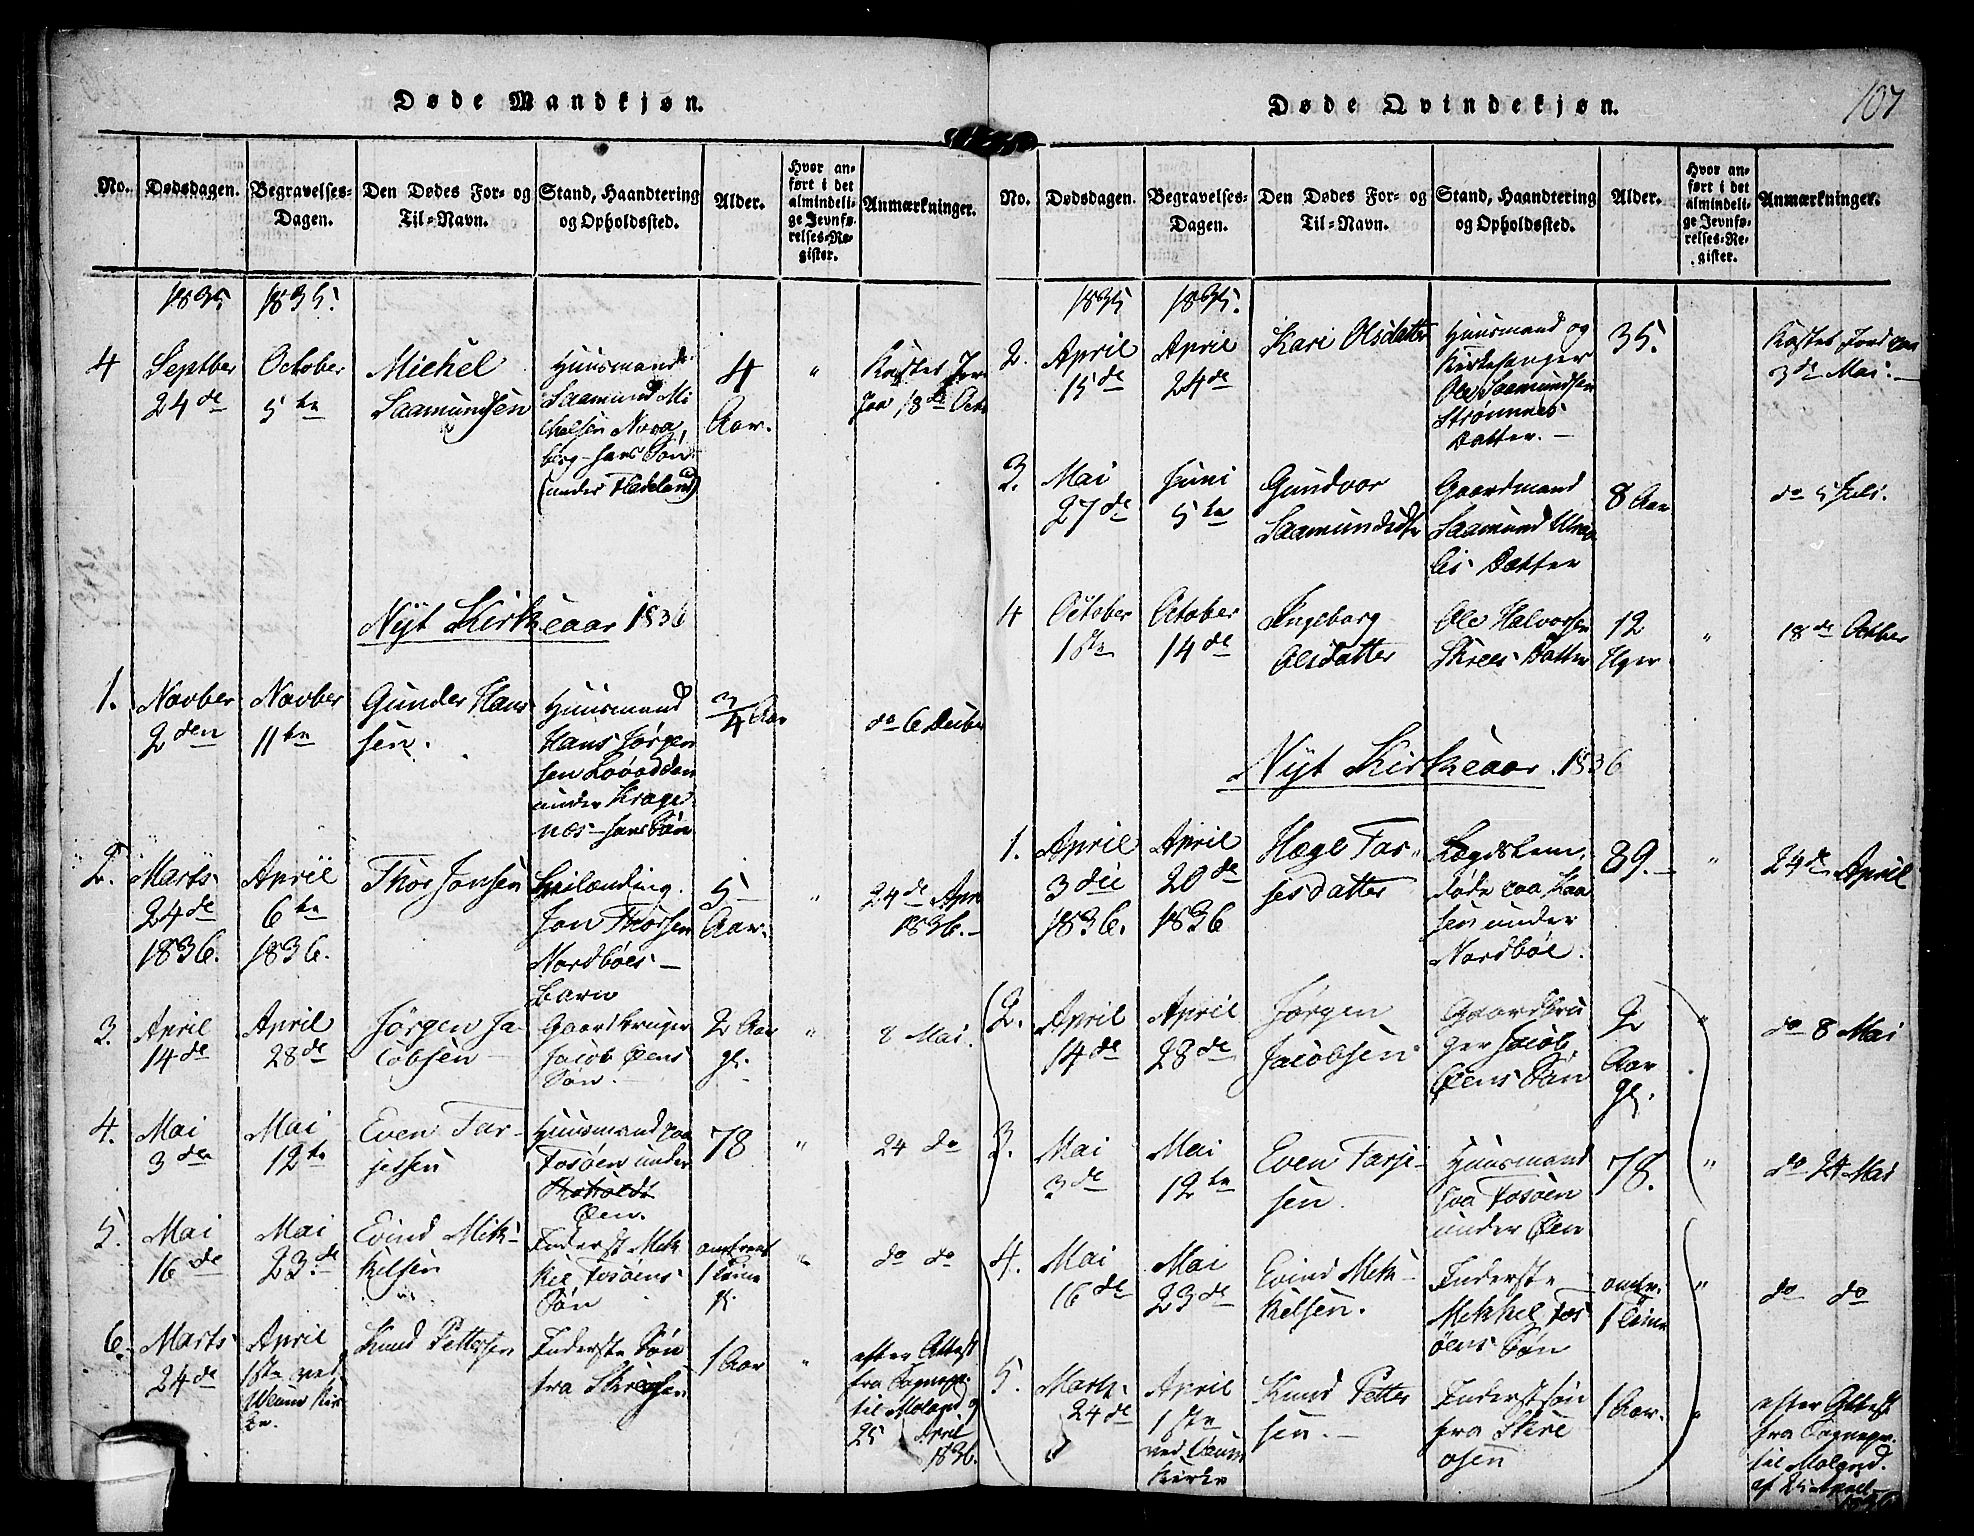 Døde Mandkjøn.
No.
Dødsdagen.
Begravelses-
Dagen.
Den Dødes For- og
Til-Navn.
Stand, Haandtering
og Opholdssted.
Alder.
Hvor an-
ført i det
almindeli-
ge Jevnfø-
relses-Re-
gister.
Anmærkninger.
1835
1835.
4
Septber
24de
October
5te
Michel
Saamundsen
Huusmand
Saamund Mi
chelsen
berg - hans Søn
(under
4
Aar.
"
Kastet Jord
paa 18de Octr
Nyt Kirkeaar 1836
1.
Novber
2den
Novber
11te
Gunder Hans
sen.
Huusmand
Hans Jørgen
sen
under Krage
næs - hans Søn
3/4 Aar
do 6 Decbr
2.
Marts
24de
1836.
April
6te
1836.
Thor Jonsen
Leilænding
Jon Thorsen
Nordbøes
Barn
5
Aar.
"
24de Apr
1836.
3.
April
14de
April
28de
Jörgen Ja-
cobsen
Gaardbruger
Jacob Øens
Søn.
2 Aar
gl.
"
8 Mai.
4.
Mai
3die
Mai
12te
Even Tar-
jessen
Huusmand paa
Tosøen under
Øen.
78
"
24 do
5.
Mai
16de
Mai
23de
Evind Mik-
kelsen
Inderst Mik
kel Tosøens
Søn
omtrent
1 Time
gl.
"
do do
6.
Marts
24de
April
1ste ved
Kir
ke.
Knud Pettersen
Inderste Søn
fra Skreosen
1 Aar
"
efter Attest
fra Sognepr.
til Moland af
25 April
1836.
Døde Qvindekjøn.
107
No.
Dødsdagen.
Begravelses-
Dagen.
Den Dødes For- og
Til-Navn.
Stand, Haandtering
og Opholdssted.
Alder.
Hvor an-
ført i det
almindeli-
ge Jevnfø-
relses-Re-
gister.
Anmærkninger.
1835
1835.
2.
April
15de
April
24de
Kari Olsdatter
Huusmand og
Kirkesanger
Ole Saamundsen
Strømnes
Datter.
35.
Kastet Jord paa
3die Mai.
3.
Mai
27de
Juni
5te
Gundvor
Saamundsdtr
Gaardmand
Saamund
Datter
8 Aar
do 5 Juli.
4
October
1ste
October
14de
Ingeborg
Olsdatter
Ole Halvorsen
Skrees Datter
12
Uger
"
18de Octber
Nyt Kirkeaar. 1836
1.
April
3die
1836.
April
20de
1836
Hæge Tar-
jesdatter
Lægdslem,
døde paa
under
Nordbøe.
89.
"
24de April
2.
April
14de
April
28de
Jørgen
Jacobsen
Gaardbru
ger Jacob
Øens Søn
2
Aar
gl.
"
do 8 Mai
3.
Mai
3de
Mai
12te
Even Tarje-
sen
Huusmand
paa Tosøen
under Øen
78.
"
do 24 Mai
4.
Mai
16de
Mai
23de
Evind Mik-
kelsen.
Inderste
Mikkel Tos
øens Søn
omtr.
1 Time
"
do do
5.
Marts
24de
April
1ste
ved
Kirke
Knud Petter
sen.
Inderstsøn
fra Skre
osen
1 Aar.
"
efter Attest
fra Sognepr.
til Moland.
af 25 April
1836